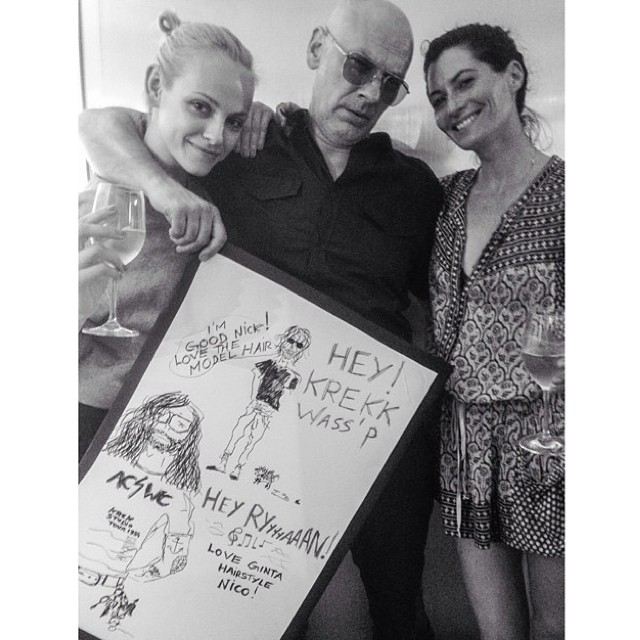 I'M
GOOD Nick!
LOVE THE
MODEL HAIR
HEY!
KREKK
WASS'P
ACSWC
HEY RYYYYAAAN!
LOVE GINTA
HAIRSTYLE
NICO!